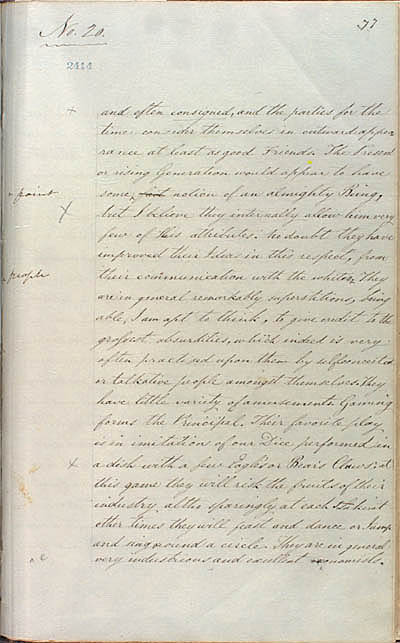 No. 20.
77
2414
and often consigned, and the parties for the
time consider themselves in outward appea
rance at least as good Friends. The Present
or rising Generation would appear to have
some notion of an almighty Being,
point
but I believe they internally allow him very
few of His attributes: no doubt they have
improved their Ideas in this respect, from
people
their communication with the whites. They
are in general remarkably superstitious, being
able, I am apt to think, to give credit to the
grossest absurdities, which indeed is very
often practised upon them by selfconceited
or talkative people amongst themselves. They
have little variety of amusements. Gaming
forms the Principal. Their favorite play
is in imitation of our Dice performed in
a dish with a few Eagle's or Bears Claws: at
this game they will risk the fruits of their
industry, altho sparingly at each
other times they will feast and dance or Jump
and sing round a circle. They are in general
very industrious and excellent economists.